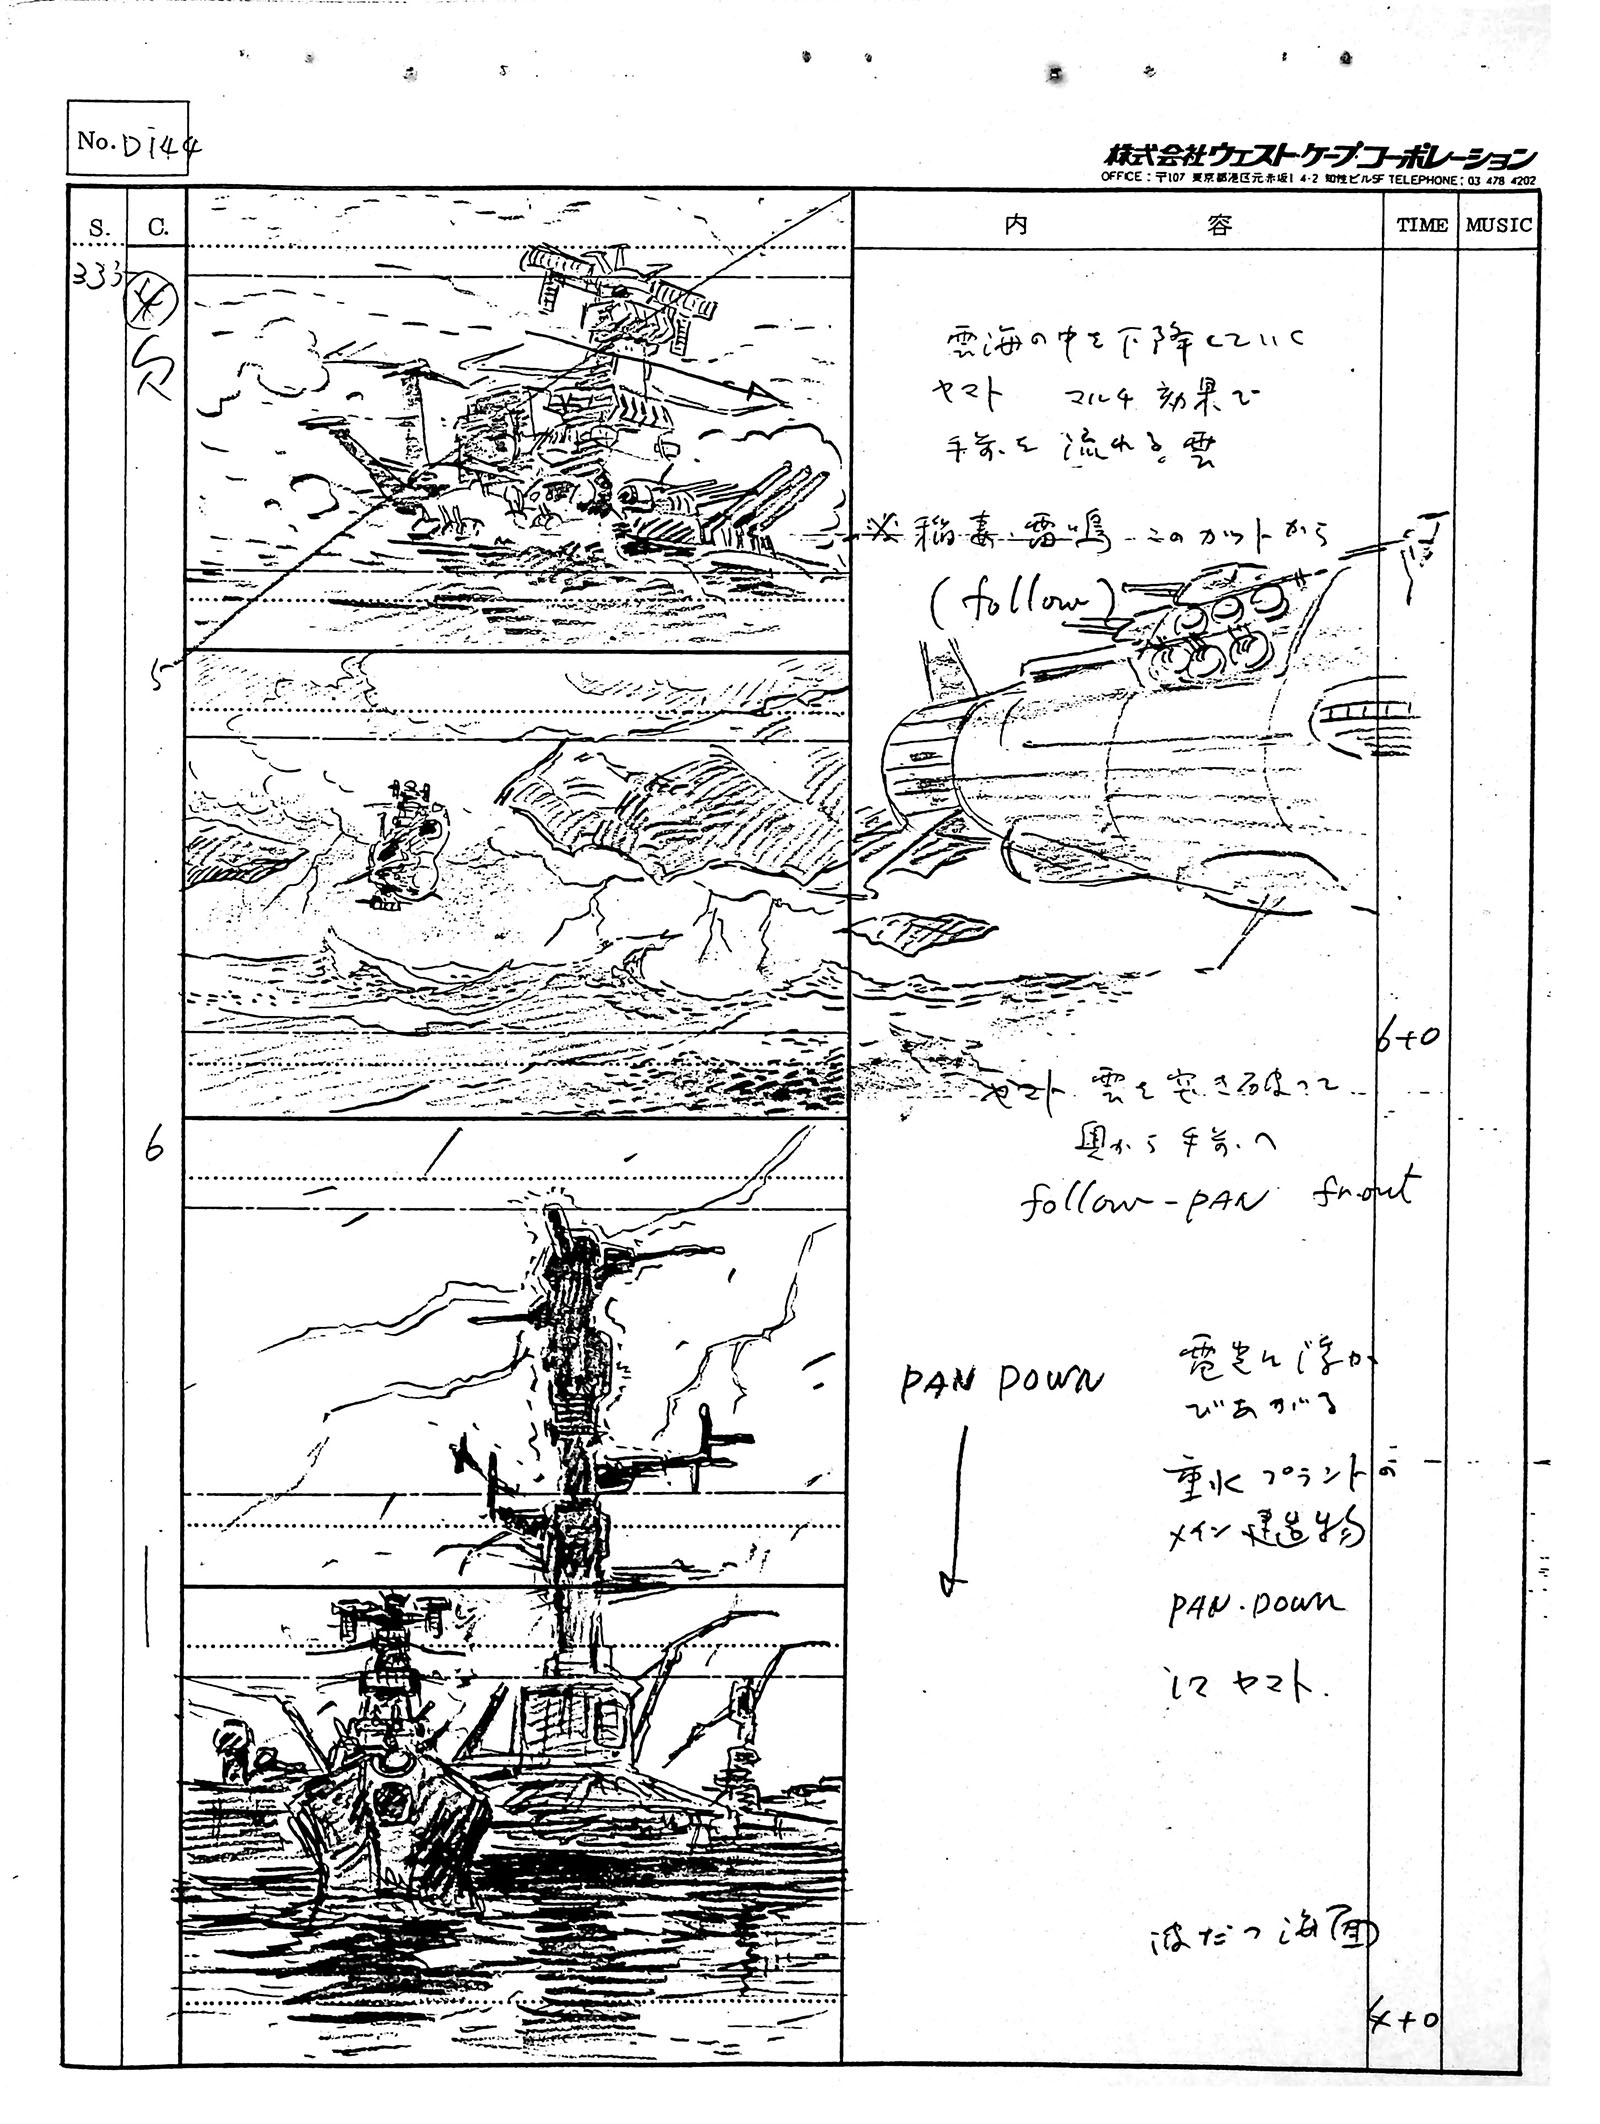 No. Di44
株式会社ウェスト・ケープ・コーポレーション
OFFICE:〒107 東京都港区元赤坂1 4-2 知性ビル5F TELEPHONE: 03 478 4202
S. C. 内容 TIME MUSIC
333
4
欠
雲海の中を下降していく
ヤマト マルチ効果で
手前を流れる雲
※ 稲妻 雷鳴 このカットから
(follow)
5
6+0
ヤマト 雲を突き破って
奥から手前へ
follow-PAN fr.out
6
PAN DOWN
電光に浮か
びあがる
重水プラントの
メイン建造物
PAN.DOWN
ヤマト.
波だつ海面
4+0